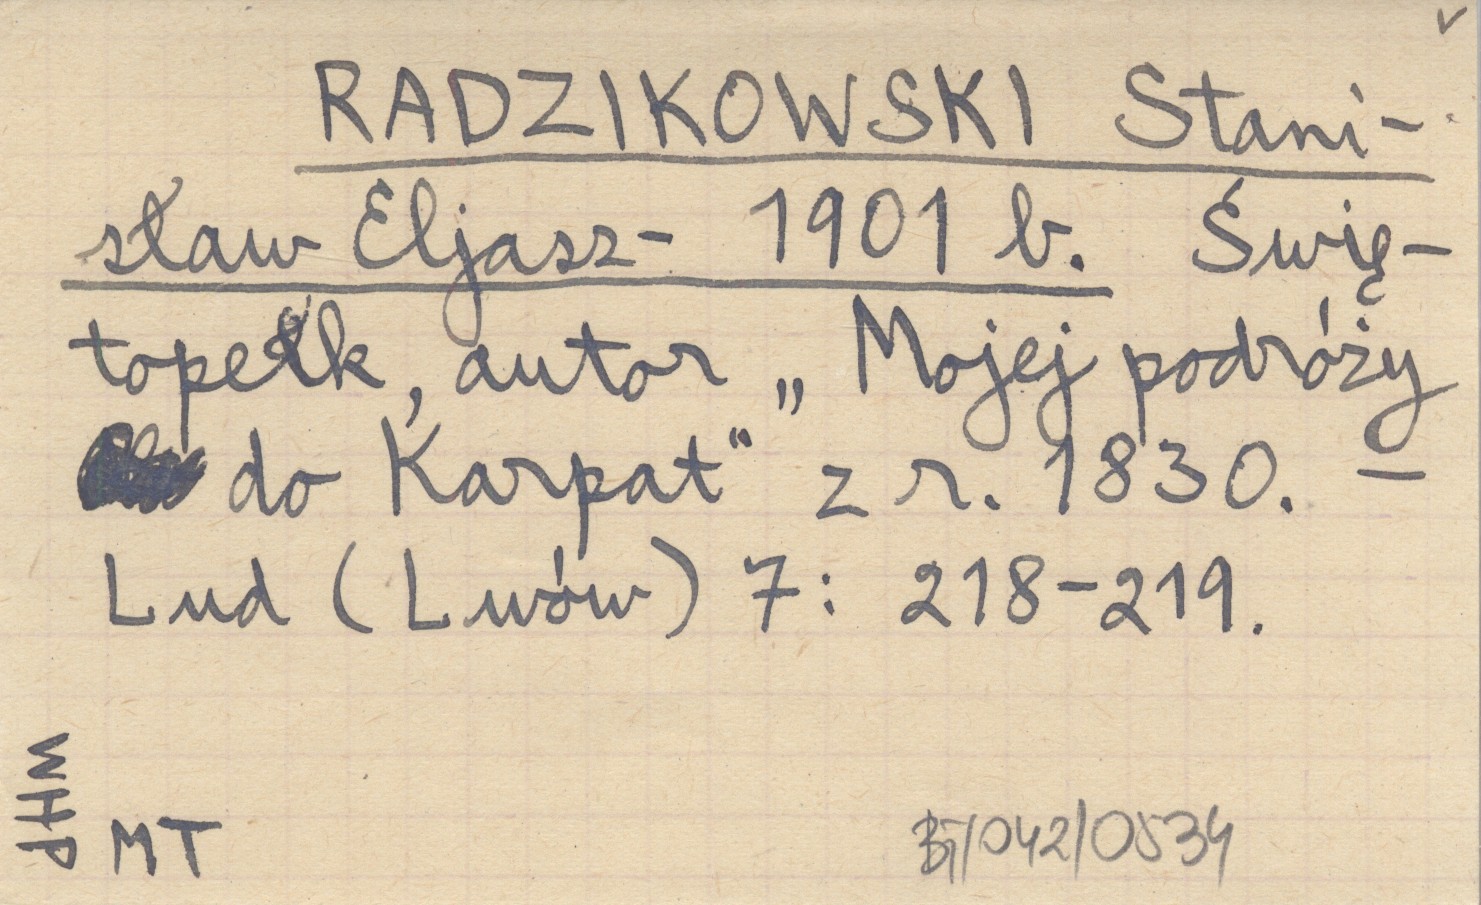 RADZIKOWSKI Stani-
sław Eljasz- 1901 b. Świę-
topełk, autor „Mojej podróży
do Karpat" z r. 1830. —
Lud (Lwów) 7: 218-219.
WHP
MT
BT/042/0534